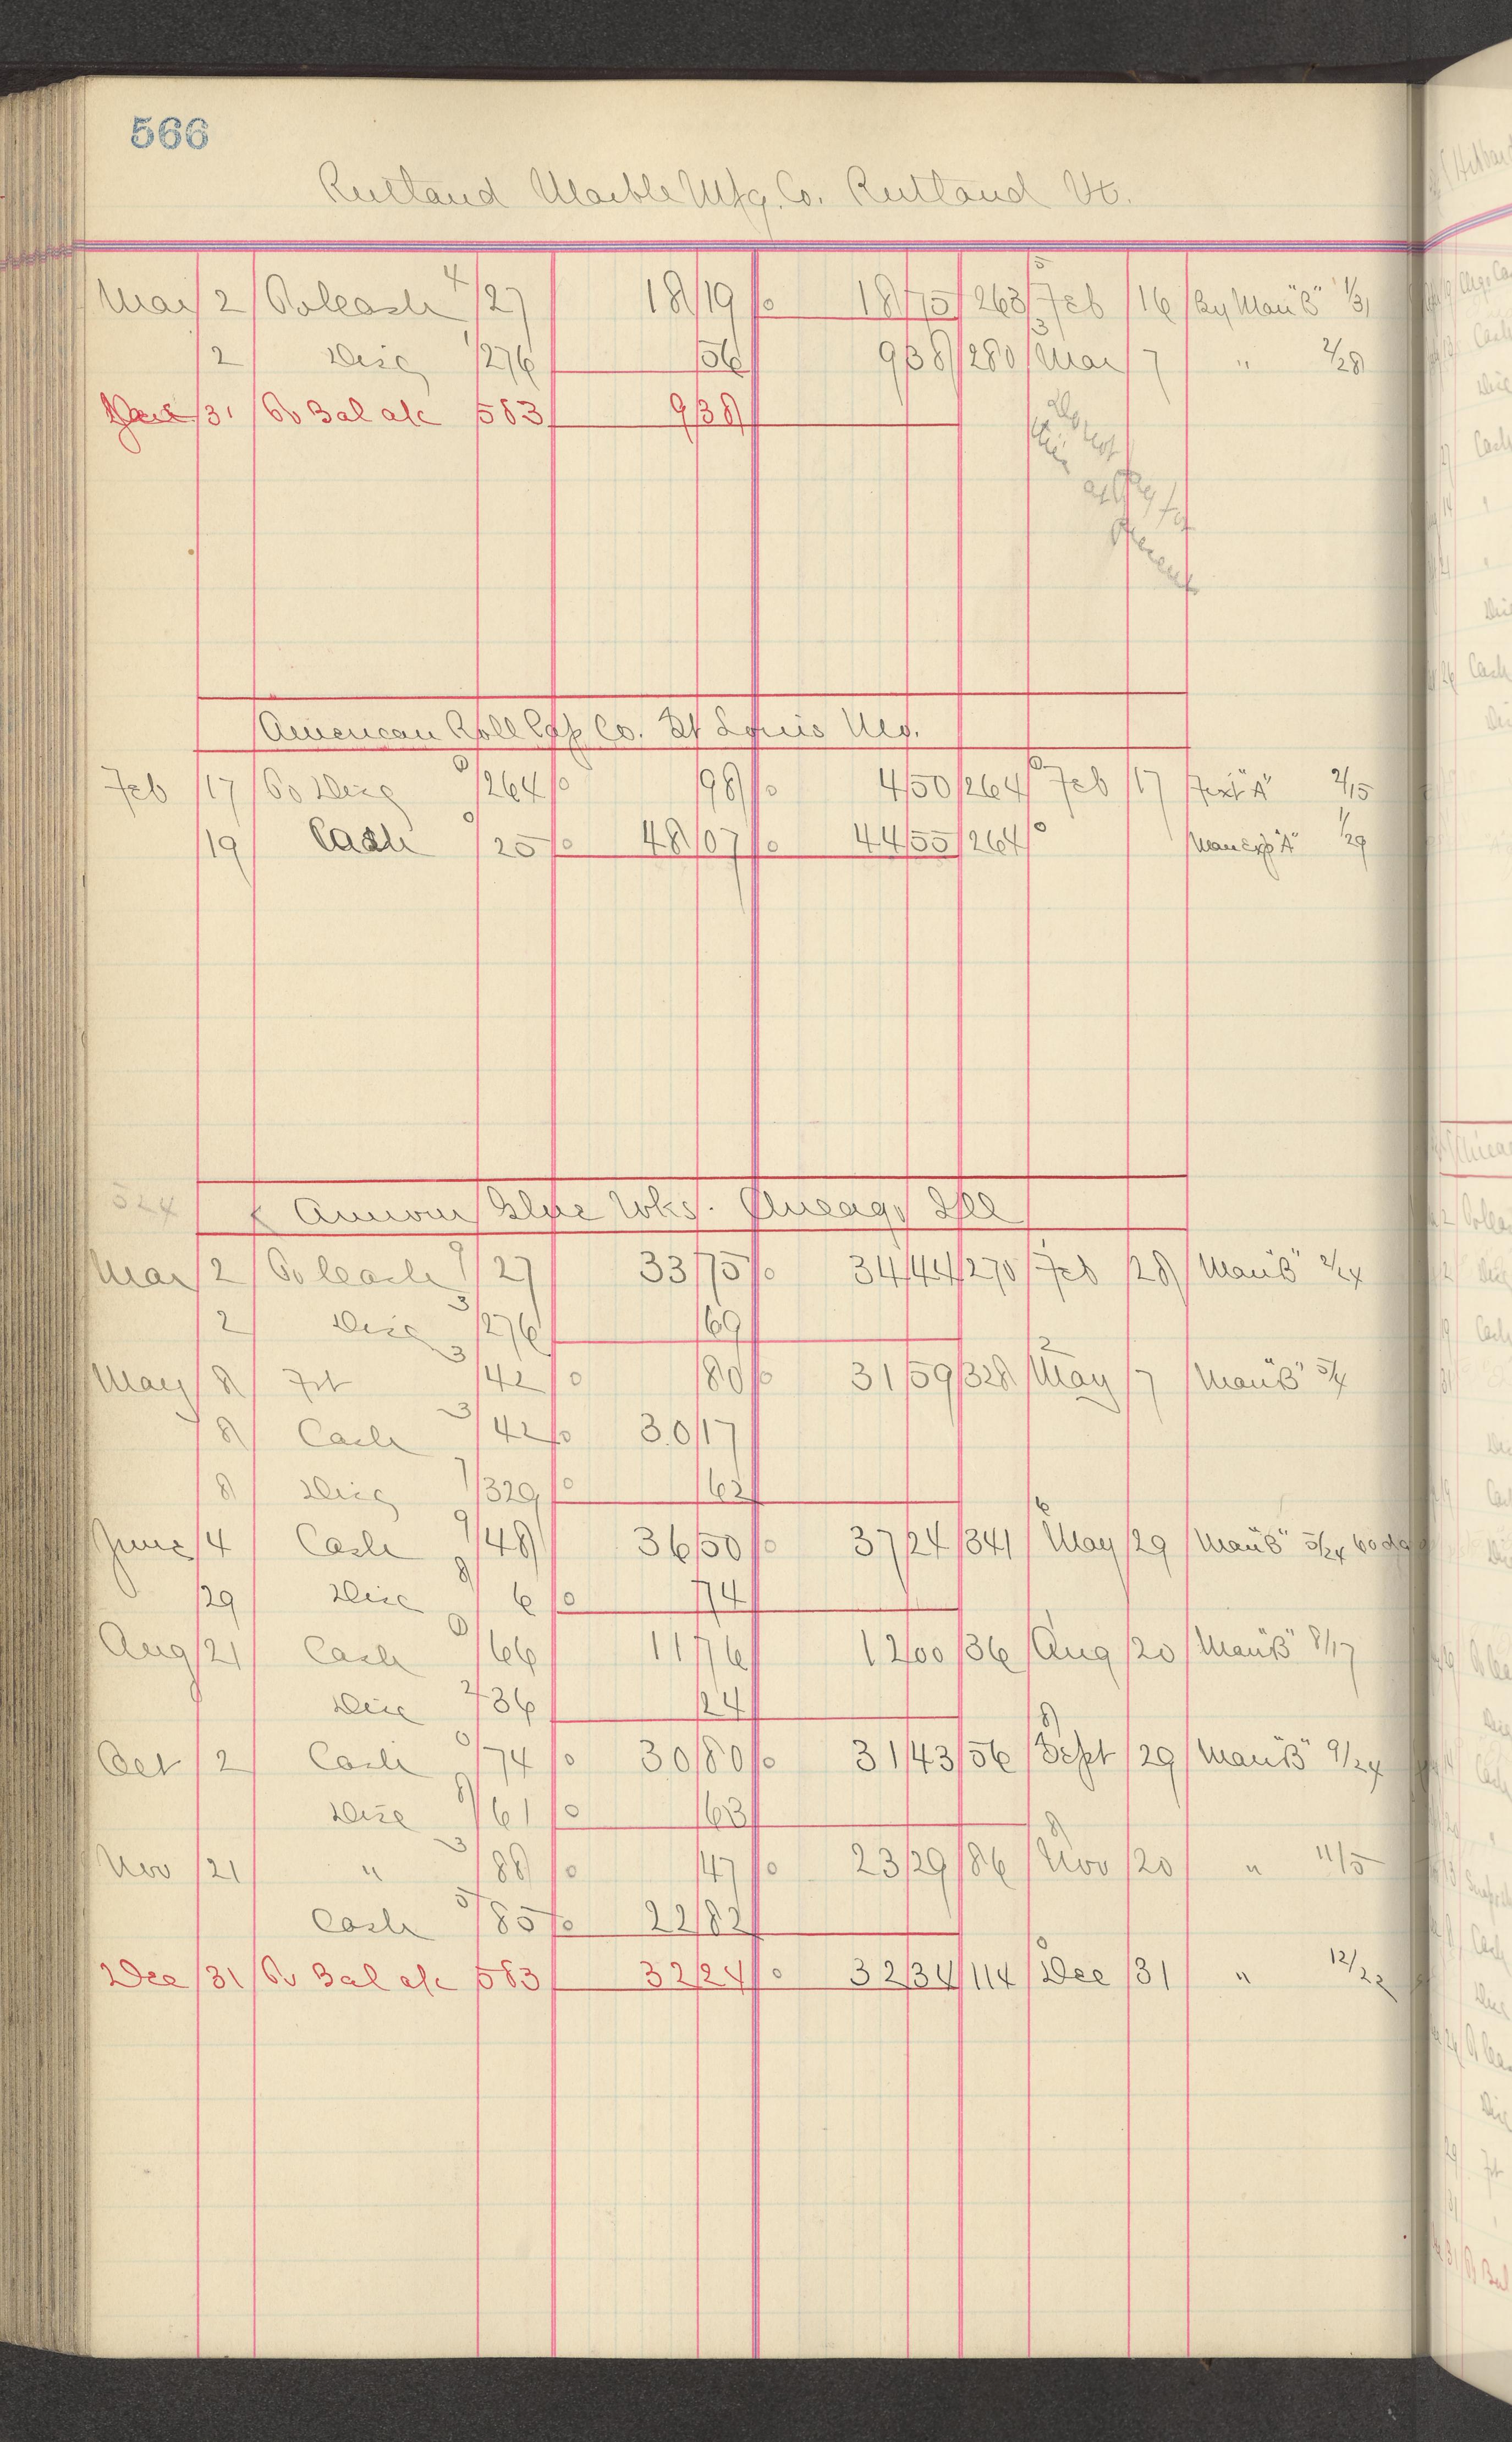 566
Rutland Marble Mfg. Co. Rutland Vt.
Mar 2 To Cash 4 27 18 19 18 75 263 5 Feb 16 By Man "B" 1/31
2 Disc 1 276 56 9 38 280 3 Mar 7 " 2/28
31 To Bal a/c 583 9 38
Do not
this
Present
American Roll Co. St Louis Mo.
Feb 17 To Disc 0 264 98 4 50 264 0 Feb 17 "A" 2/15
19 Cash 0 25 48 07 44 55 264 0 Man Exp "A" 1/29
524
Glue Wks. Chicago Ill
Mar 2 To Cash 9 27 33 75 34 44 270 1 Feb 28 Man "B" 2/24
2 Disc 3 276 69
May 8 Frt 3 42 80 31 59 328 2 May 7 Man "B" 5/4
8 Cash 3 42 30 17
8 Disc 7 329 62
June 4 Cash 9 48 36 50 37 24 341 6 May 29 Man "B" 5/24 60 dg
29 Disc 8 6 74
Aug 21 Cash 0 66 11 76 12 00 36 1 Aug 20 Man "B" 8/17
Disc 2 36 24
Oct 2 Cash 0 74 30 80 31 43 56 8 Sept 29 Man "B" 9/24
Disc 8 61 63
Nov 21 " 3 88 47 23 29 86 8 Nov 20 " 11/5
Cash 5 85 22 82
Dec 31 To Bal a/c 583 32 24 32 34 114 0 Dec 31 " 12/22